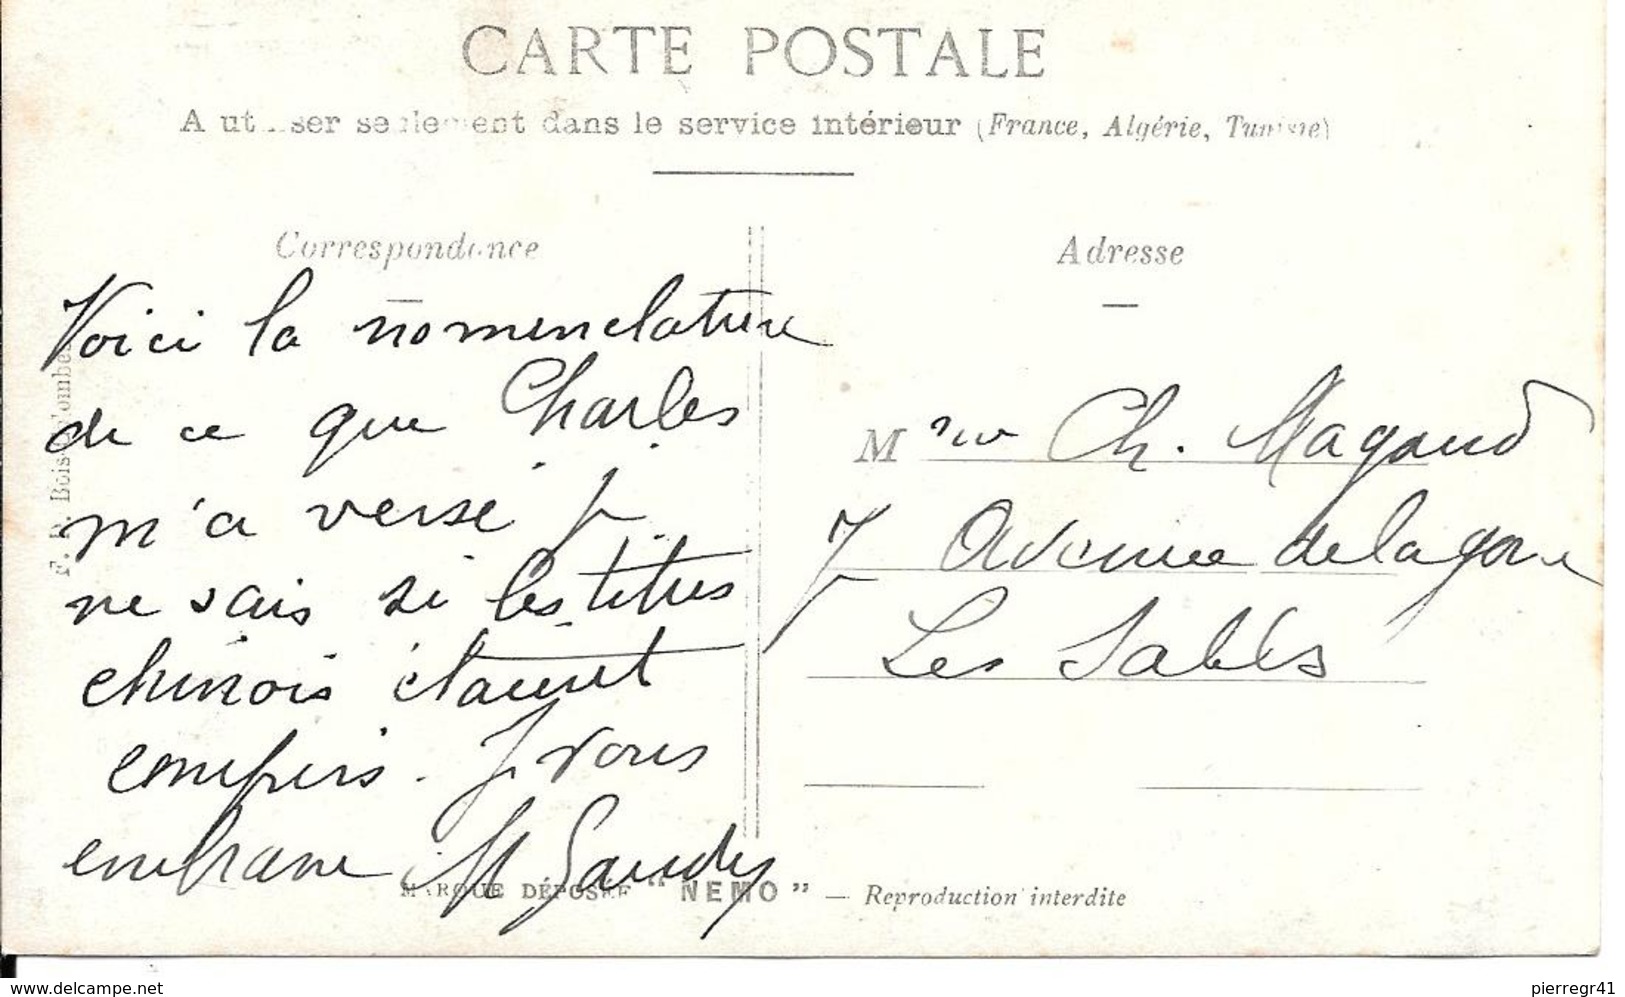 CARTE POSTALE
A utiliser seulement dans le service intérieur (France, Algérie, Tunisie)
Correspondance
Voici la nomenclature
de ce que Charles
m'a versé je
ne sais si les titres
chinois étaient
compris. Je vous
embrasse M Gaudy
Adresse
Mme Ch. Magaud
7 Avenue de la gare
Les Sables
F. Bois-Colombes
MARQUE DÉPOSÉE "NEMO" — Reproduction interdite
delcampe.net
pierregr41